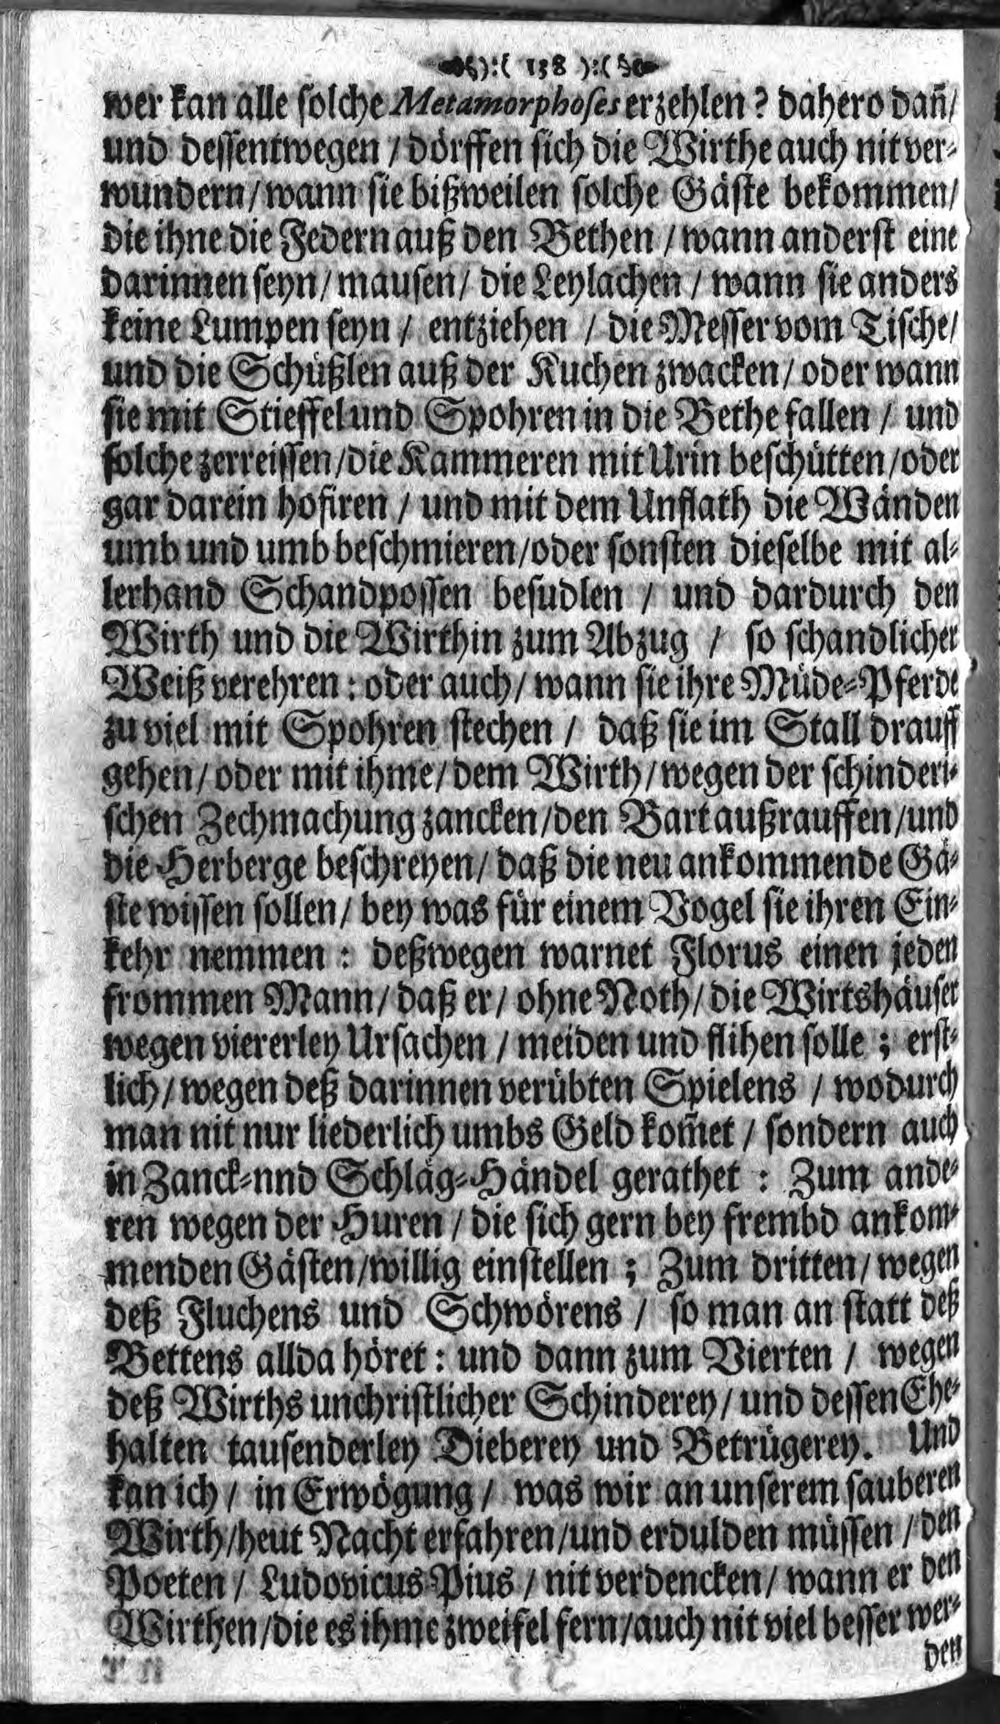 ):( 138 ):(
wer kan alle solche Metamorphoses erzehlen? dahero dañ/
und dessentwegen / dörffen sich die Wirthe auch nit ver-
wundern/ wann sie bißweilen solche Gäste bekommen/
die ihne die Federn auß den Bethen / wann anderst eine
darinnen seyn/ mausen/ die Leylachen / wann sie anders
keine Lumpen seyn / entziehen / die Messer vom Tische/
und die Schüßlen auß der Kuchen zwacken/ oder wann
sie mit Stieffel und Spohren in die Bethe fallen / und
solche zerreissen/die Kammeren mit Urin beschütten/oder
gar darein hofiren / und mit dem Unflath die Wänden
umb und umb beschmieren/oder sonsten dieselbe mit al-
lerhand Schandpossen besudlen / und dardurch den
Wirth und die Wirthin zum Abzug / so schandlicher
Weiß verehren: oder auch/ wann sie ihre Müde-Pferde
zu viel mit Spohren stechen / daß sie im Stall drauff
gehen/ oder mit ihme/ dem Wirth/ wegen der schinderi-
schen Zechmachung zancken/den Bart außrauffen/und
die Herberge beschreyen/ daß die neu ankommende Gä-
ste wissen sollen/ bey was für einem Vogel sie ihren Ein-
kehr nemmen : deßwegen warnet Florus einen jeden
frommen Mann/ daß er/ ohne Noth/ die Wirtshäuser
wegen viererley Ursachen / meiden und flihen solle ; erst-
lich/ wegen deß darinnen verübten Spielens / wodurch
man nit nur liederlich umbs Geld kom̃et / sondern auch
in Zanck-nnd Schläg-Händel gerathet : Zum ande-
ren wegen der Huren / die sich gern bey frembd ankom-
menden Gästen/willig einstellen ; Zum dritten/ wegen
deß Fluchens und Schwörens / so man an statt deß
Bettens allda höret : und dann zum Vierten / wegen
deß Wirths unchristlicher Schinderey/ und dessen Ehe-
halten tausenderley Dieberey und Betrügerey. Und
kan ich / in Erwögung / was wir an unserem sauberen
Wirth/heut Nacht erfahren/und erdulden müssen / den
Poeten / Ludovicus Pius / nit verdencken/ wann er den
Wirthen/die es ihme zweifel fern/auch nit viel besser wer-
den